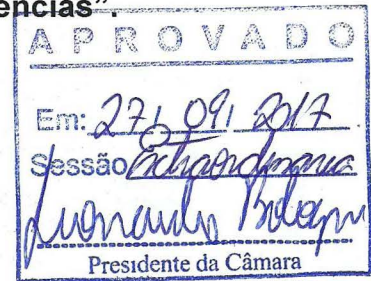 ências”.
APROVADO
Em: 27/ 09/ 2017
Sessão Extraordinária
Presidente da Câmara